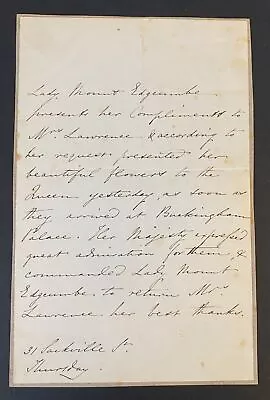 Lady Mount Edgcumbe
presents her Compliments to
Mrs. Lawrence & according to
her request presented her
beautiful flowers to the
Queen yesterday, as soon as
they arrived at Buckingham
Palace. Her Majesty expressed
great admiration for them, &
commanded Lady Mount
Edgcumbe to return Mrs.
Lawrence her best thanks.
31 Sackville St.
Thursday.